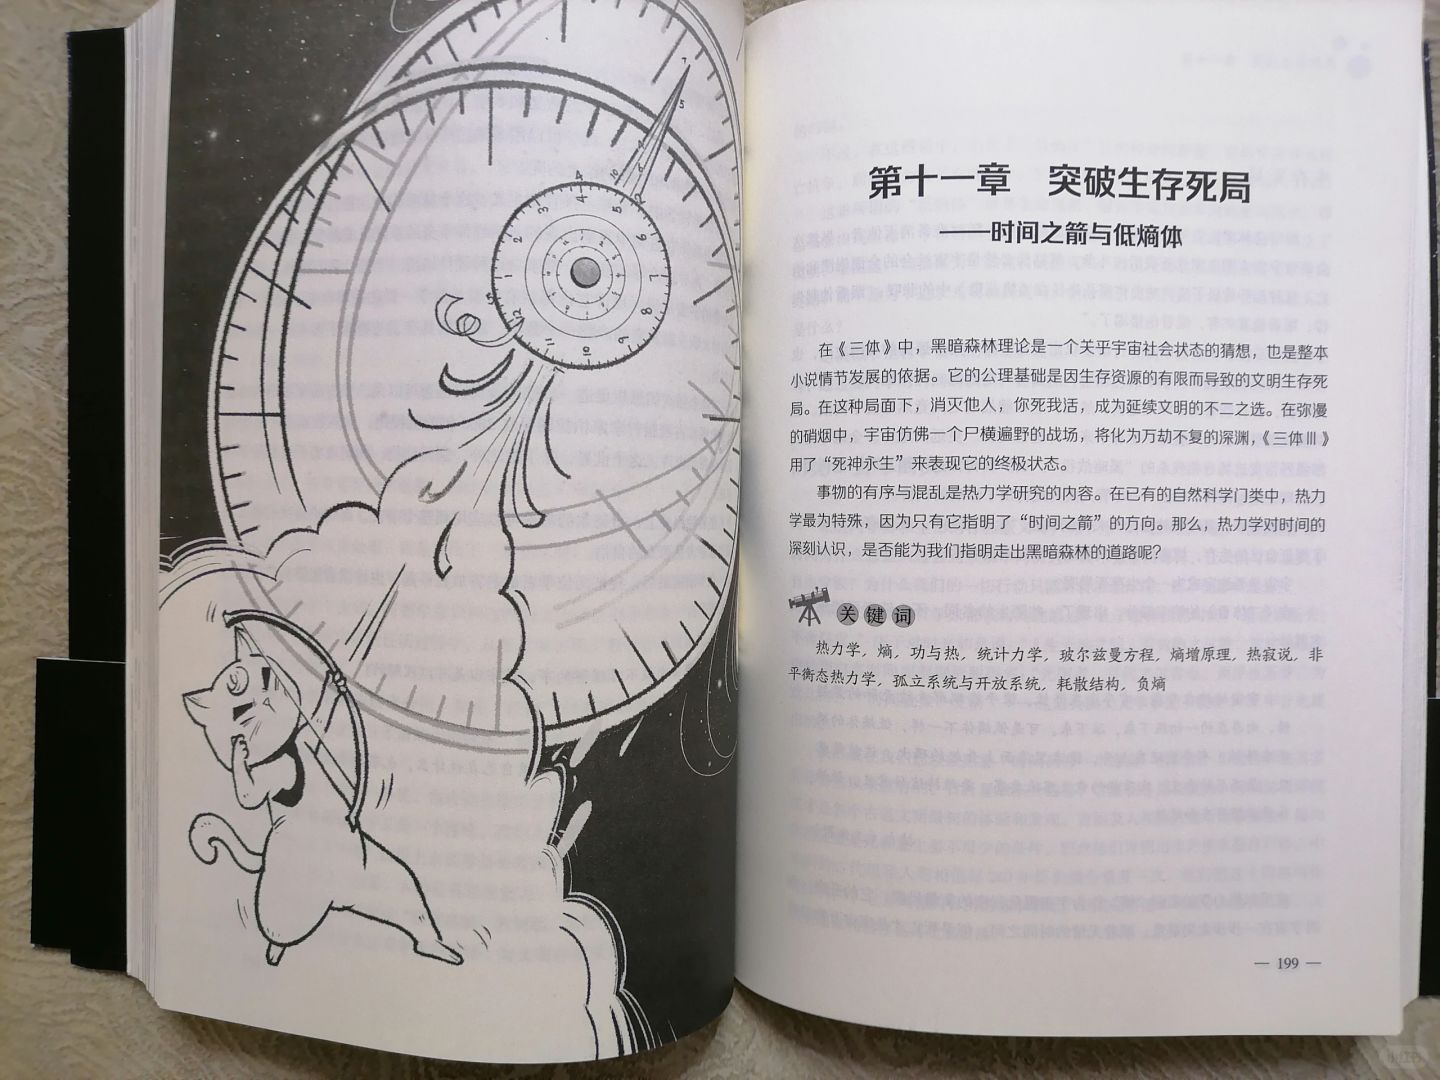 第十一章 突破生存死局
——时间之箭与低熵体
在《三体》中，黑暗森林理论是一个关乎宇宙社会状态的猜想，也是整本
小说情节发展的依据。它的公理基础是因生存资源的有限而导致的文明生存死
局。在这种局面下，消灭他人，你死我活，成为延续文明的不二之选。在弥漫
的硝烟中，宇宙仿佛一个尸横遍野的战场，将化为万劫不复的深渊，《三体Ⅲ》
用了“死神永生”来表现它的终极状态。
事物的有序与混乱是热力学研究的内容。在已有的自然科学门类中，热力
学最为特殊，因为只有它指明了“时间之箭”的方向。那么，热力学对时间的
深刻认识，是否能为我们指明走出黑暗森林的道路呢？
关键词
热力学，熵，功与热，统计力学，玻尔兹曼方程，熵增原理，热寂说，非
平衡态热力学，孤立系统与开放系统，耗散结构，负熵
— 199 —
小红书